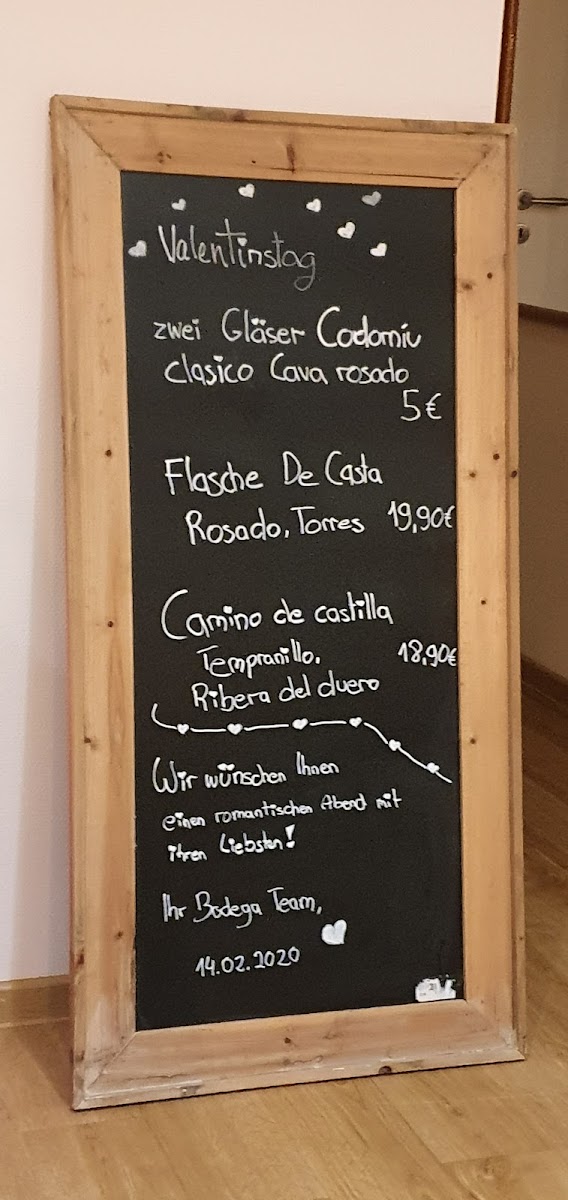 Valentinstag
zwei Gläser Codorniu
clasico Cava rosado
5€
Flasche De Casta
Rosado, Torres 19,90€
Camino de castilla
Tempranillo, 18,90€
Ribera del duero
Wir wünschen Ihnen
einen romantischen Abend mit
ihren Liebsten!
Ihr Bodega Team,
14.02.2020